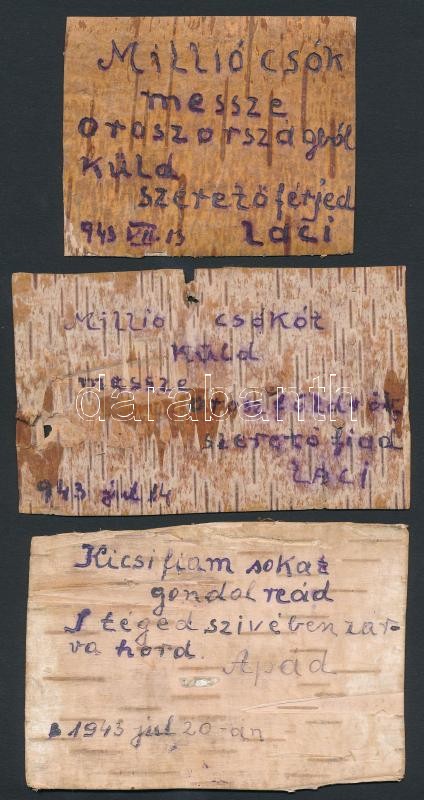 Millió csók
messze
oroszországból
Küld
szerető férjed
943 VII. 13 Laci
Millió csókót
Küld
messze
orosz földről
szerető fiad
943 júl 14 LACI
darabanth
Kicsi fiam sokat
gondol reád
S téged szivében zár-
va hord.
Apád
1943 júl 20-án